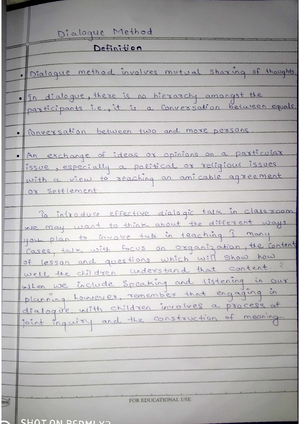 Dialogue Method
Definition
• Dialogue method involves mutual sharing of thoughts.
• In dialogue, there is no hierarchy amongst the
participants i.e., it is a conversation between equals
• Conversation between two and more persons.
• An exchange of ideas or opinions on a particular
issue, especially a political or religious issues
with a view to reaching an amicable agreement
or settlement.
To introduce effective dialogic talk in classroom
we may want to think about the different ways
you plan to involve talk in teaching? many
cases, this with focus on organization, the content
of lesson and questions which will show how
well the children understand that content
when we include speaking and listening in our
planning however, remember that engaging in
dialogue with children involves a process of
joint inquiry and the construction of meaning.
FOR EDUCATIONAL USE
SHOT ON REDMI Y2